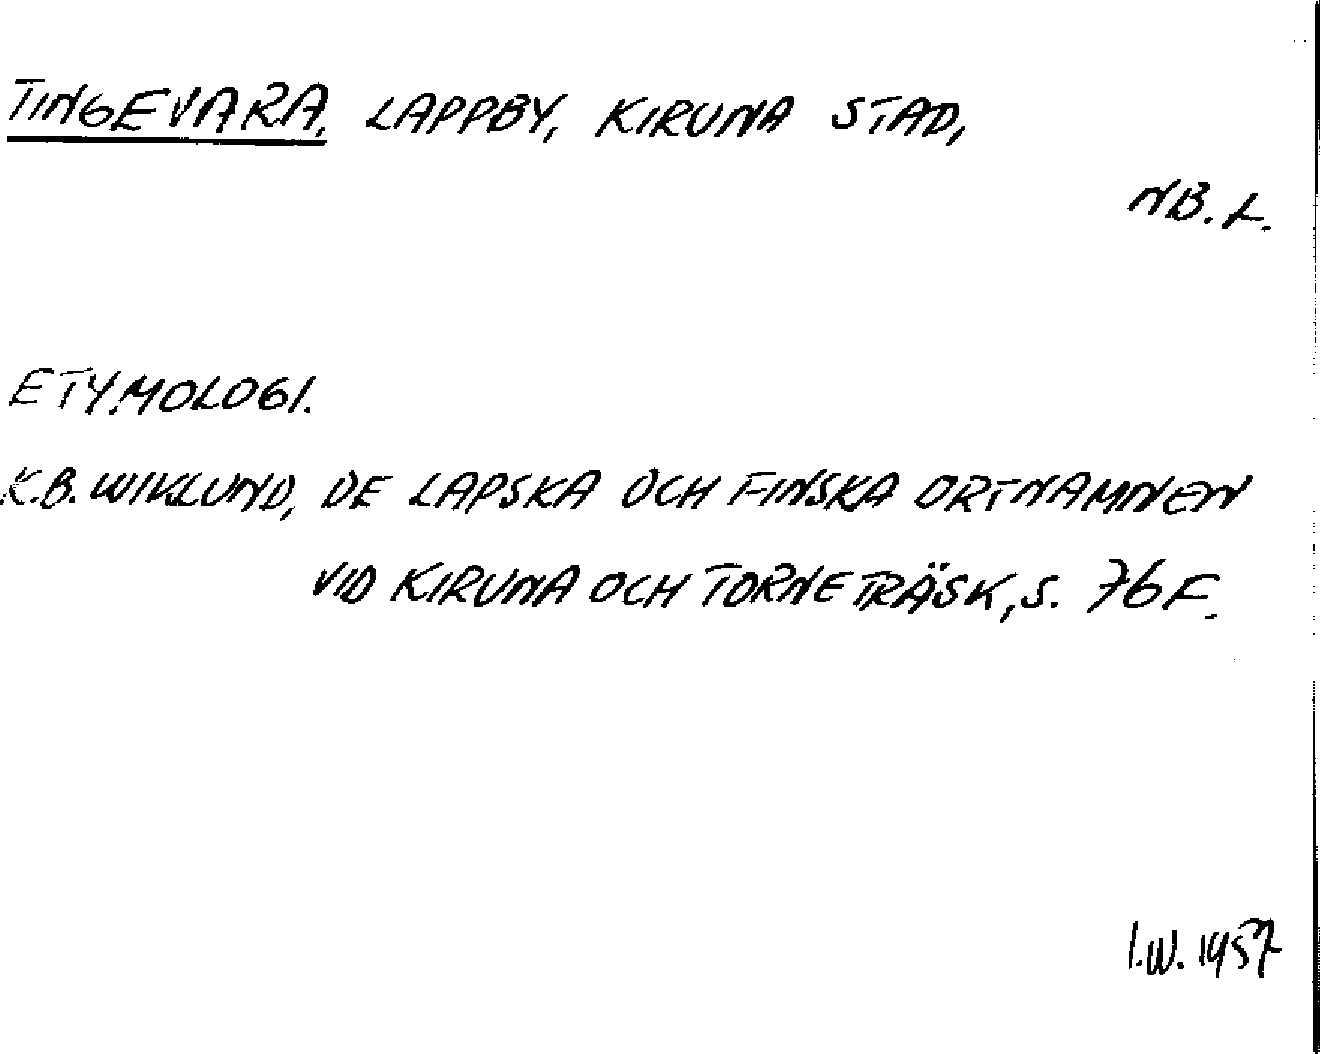 TINGEVARA, LAPPBY, KIRUNA STAD,
NB.L.
ETYMOLOGI.
K.B. WIKLUND, DE LAPSKA OCH FINSKA ORTNAMNEN
VID KIRUNA OCH TORNETRÄSK, S. 76 F.
I.W. 1957